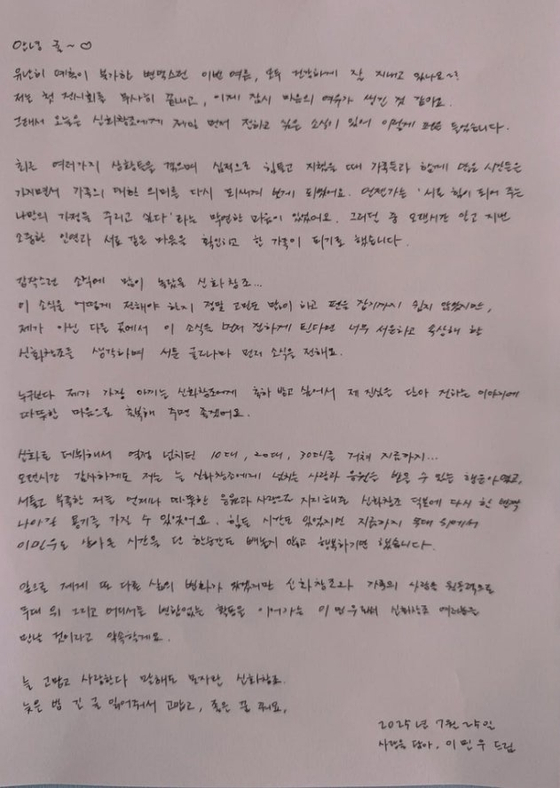 안녕 귤~♡
유난히 예측이 불가한 변덕스런 이번 여름, 모두 건강하게 잘 지내고 있나요~?
저는 첫 전시회를 무사히 끝내고, 이제 잠시 마음의 여유가 생긴 것 같아요.
그래서 오늘은 신화창조에게 제일 먼저 전하고 싶은 소식이 있어 이렇게 펜을 들었습니다.
최근 여러가지 상황들을 겪으며 심적으로 힘들고 지쳤을 때 가족들과 함께 많은 시간들을
가지면서 가족의 대한 의미를 다시 되새기게 되었어요. 언젠가는 '서로 힘이 되어 주는
나만의 가정을 꾸리고 싶다'라는 막연한 마음이 있었어요. 그러던 중 오랜시간 알고 지낸
소중한 인연과 서로 같은 마음을 확인하고 한 가족이 되기로 했습니다.
갑작스런 소식에 많이 놀랐을 신화창조...
이 소식을 어떻게 전해야 하지 정말 고민도 많이 하고 펜을 잡기까지 쉽지 않았지만,
제가 아닌 다른 곳에서 이 소식을 먼저 전하게 된다면 너무 서운하고 속상해 할
신화창조를 생각하며 서툰 글로나마 먼저 소식을 전해요.
누구보다 제가 가장 아끼는 신화창조에게 축하 받고 싶어서 제 진심을 담아 전하는 이야기에
따뜻한 마음으로 축복해 주면 좋겠어요.
신화로 데뷔해서 열정 넘치던 10대, 20대, 30대를 거쳐 지금까지...
오랜시간 감사하게도 저는 늘 신화창조에게 넘치는 사랑과 응원을 받을 수 있는 행운아였고,
서툴고 부족한 저를 언제나 따뜻한 응원과 사랑으로 지지해준 신화창조 덕분에 다시 한 발짝
나아갈 용기를 가질 수 있었어요. 힘든 시간도 있었지만 지금까지 무대 위에서
이민우로 살아온 시간을 단 한순간도 빼놓지 않고 행복하기만 했습니다.
앞으로 제게 또 다른 삶의 변화가 생겼지만 신화창조와 가족의 사랑을 원동력으로
무대 위 그리고 어디서든 변함없는 활동을 이어가는 이민우로써 신화창조 여러분을
만날 것이라고 약속할게요.
늘 고맙고 사랑한다 말해도 모자란 신화창조.
늦은 밤 긴 글 읽어줘서 고맙고, 좋은 꿈 꿔요.
2025년 7월 25일
사랑을 담아, 이민우 드림